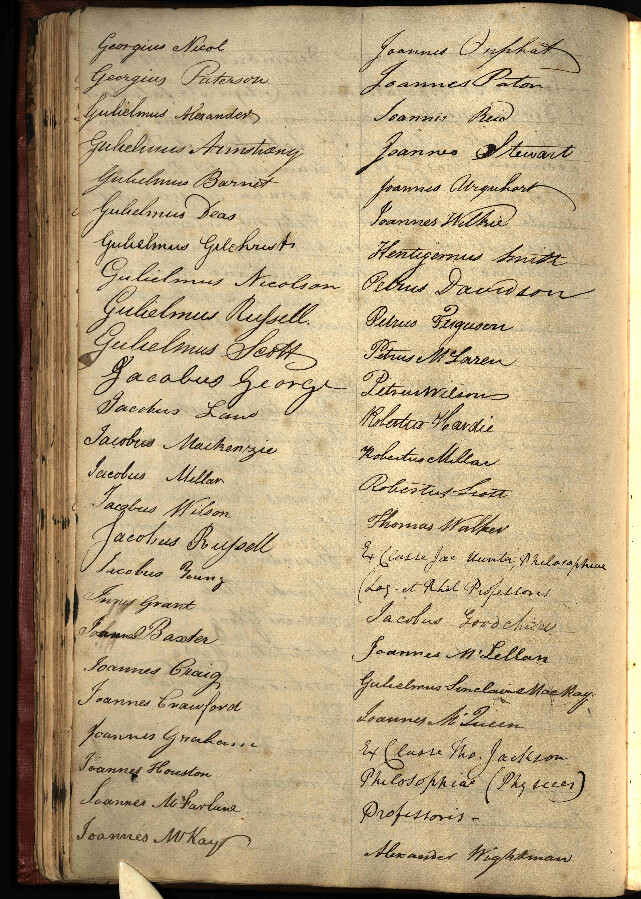 Georgius Nicol
Georgius Paterson
Gulielmus Alexander
Gulielmus Armstrong
Gulielmus Barnet
Gulielmus Deas
Gulielmus Gilchrist
Gulielmus Nicolson
Gulielmus Russell
Gulielmus Scott
Jacobus George
Jacobus
Jacobus Mackenzie
Jacobus Millar
Jacobus Wilson
Jacobus Russell
Jacobus Young
Grant
Joannes Baxter
Joannes Craig
Joannes Crawford
Joannis Graham
Joannes Houston
Joannes McFarlane
Joannes McKay
Joannes
Joannes Paton
Joannis Reid
Joannes Stewart
Joannes Urquhart
Joannes Wilkie
Kentigernus Smith
Petrus Davidson
Petrus Ferguson
Petrus McLaren
Petrus Wilson
Robertus Hardie
Robertus Millar
Robertus Scott
Thomas Walker
Ex Classe Jac Hunter, Philosophiae
(Log. et Rhet Professoris
Jacobus Goodchild
Joannes McLellan
Gulielmus Sinclair MacKay.
Joannes McQueen
Ex Classe Tho. Jackson
Philosophiae (Physices)
Professoris -
Alexander Wightman